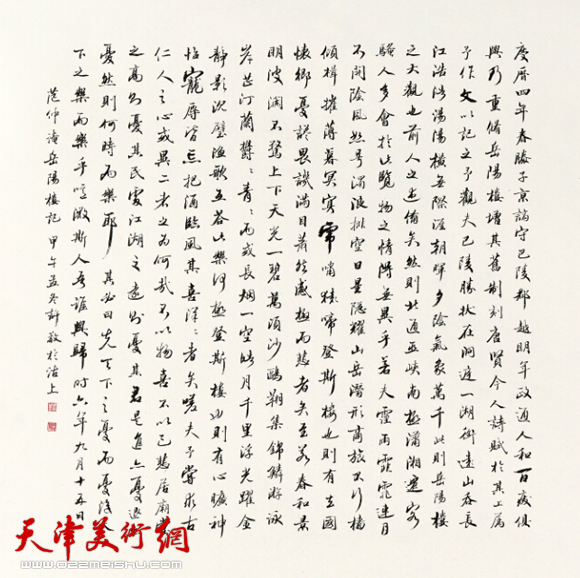 慶曆四年春滕子京謫守巴陵郡越明年政通人和百廢俱
興乃重脩岳陽樓增其舊制刻唐賢今人詩賦於其上属
予作文以記之予觀夫巴陵勝狀在洞庭一湖銜遠山吞長
江浩浩湯湯橫無際涯朝暉夕陰氣象萬千此則岳陽樓
之大觀也前人之述備矣然則北通巫峽南極瀟湘遷客
騷人多會於此覽物之情得無異乎若夫霪雨霏霏連月
不開陰風怒号濁浪排空日星隱耀山岳潛形商旅不行檣
傾楫摧薄暮冥冥虎嘯猿啼登斯樓也則有去國
懷鄉憂讒畏譏滿目蕭然感極而悲者矣至若春和景
明波瀾不驚上下天光一碧萬頃沙鷗翔集錦鱗游泳
岸芷汀蘭鬱鬱青青而或長烟一空皓月千里浮光耀金
靜影沉璧漁歌互答此樂何極登斯樓也則有心曠神
怡寵辱皆忘把酒臨風其喜洋洋者矣嗟夫予嘗求古
仁人之心或異二者之為何哉不以物喜不以己悲居廟
之高則憂其民處江湖之遠則憂其君是進亦憂退
憂然則何時而樂耶其必曰先天下之憂而憂後
下之樂而樂乎噫微斯人吾誰與歸時六年九月十五日
范仲淹岳陽樓記 甲午孟冬許敏於沽上
天津美術網
www.026meishu.com